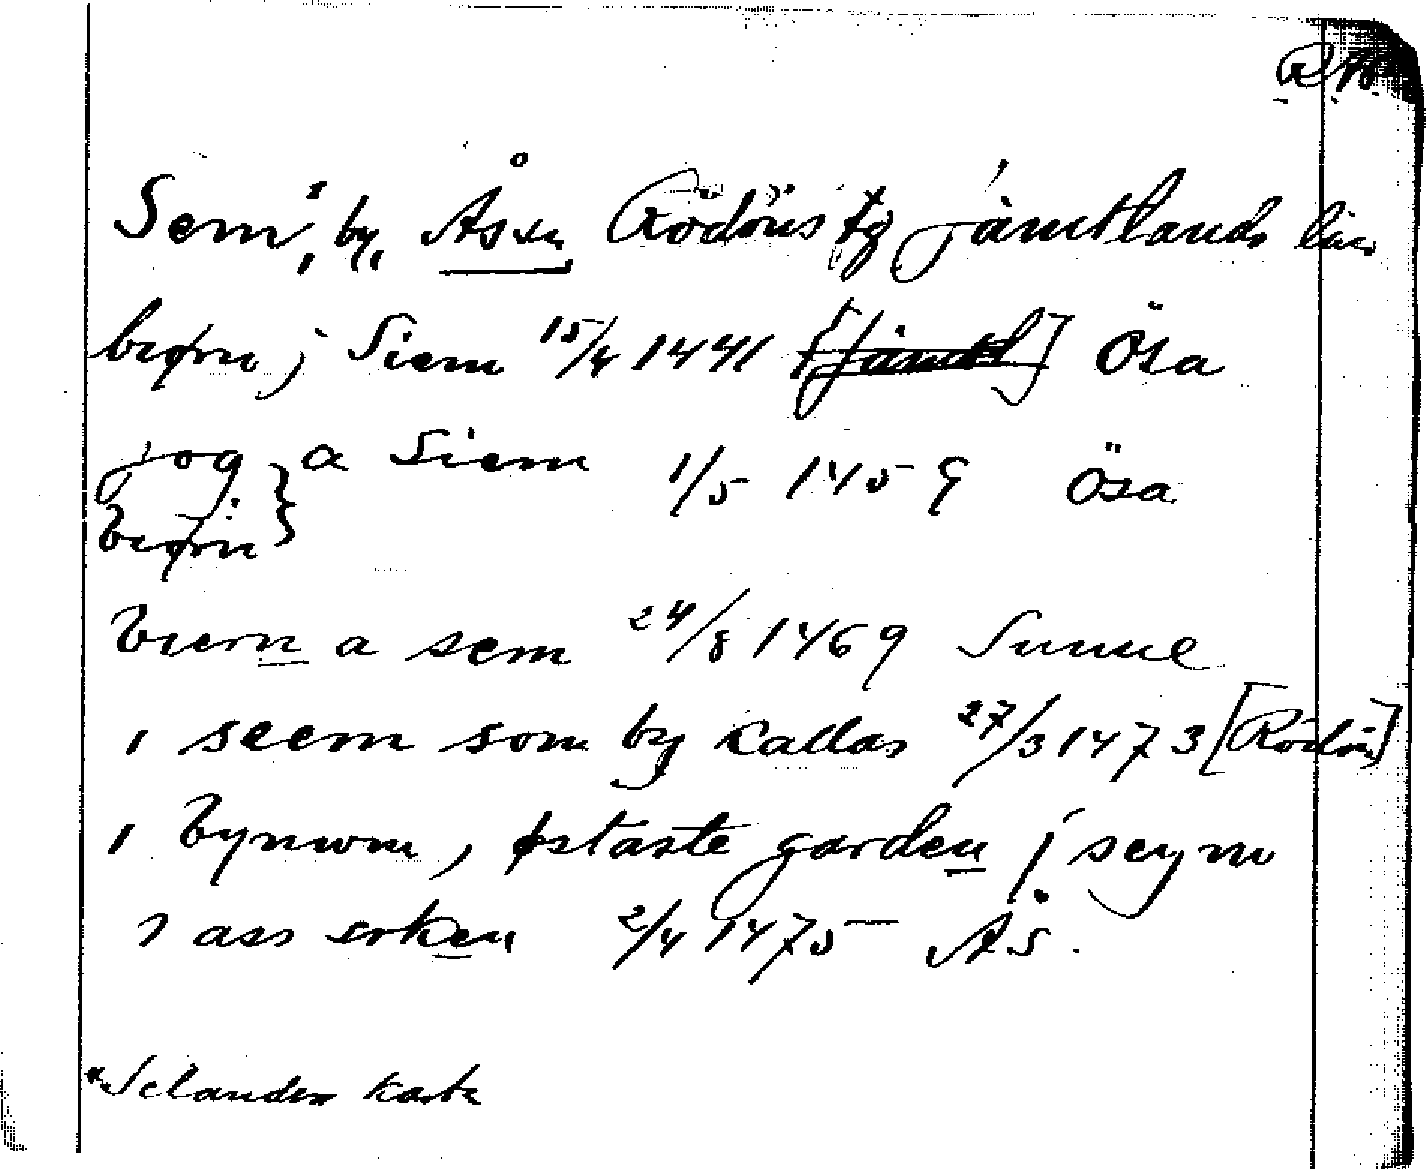 RAp
Sem*, by, Ås sn, Rödöns tg Jämtlands län
biørn j Siem 15/4 1441 [Jämtl] Ösa
jog } a Siem 1/5 1459 Ösa
biørn }
biern a sem 24/8 1469 Sunne
i seem som by kallas 27/3 1473 [Rödön]
i bynwm, østaste garden j seym
i ass soken 2/4 1475 Ås.
*Selanders karta